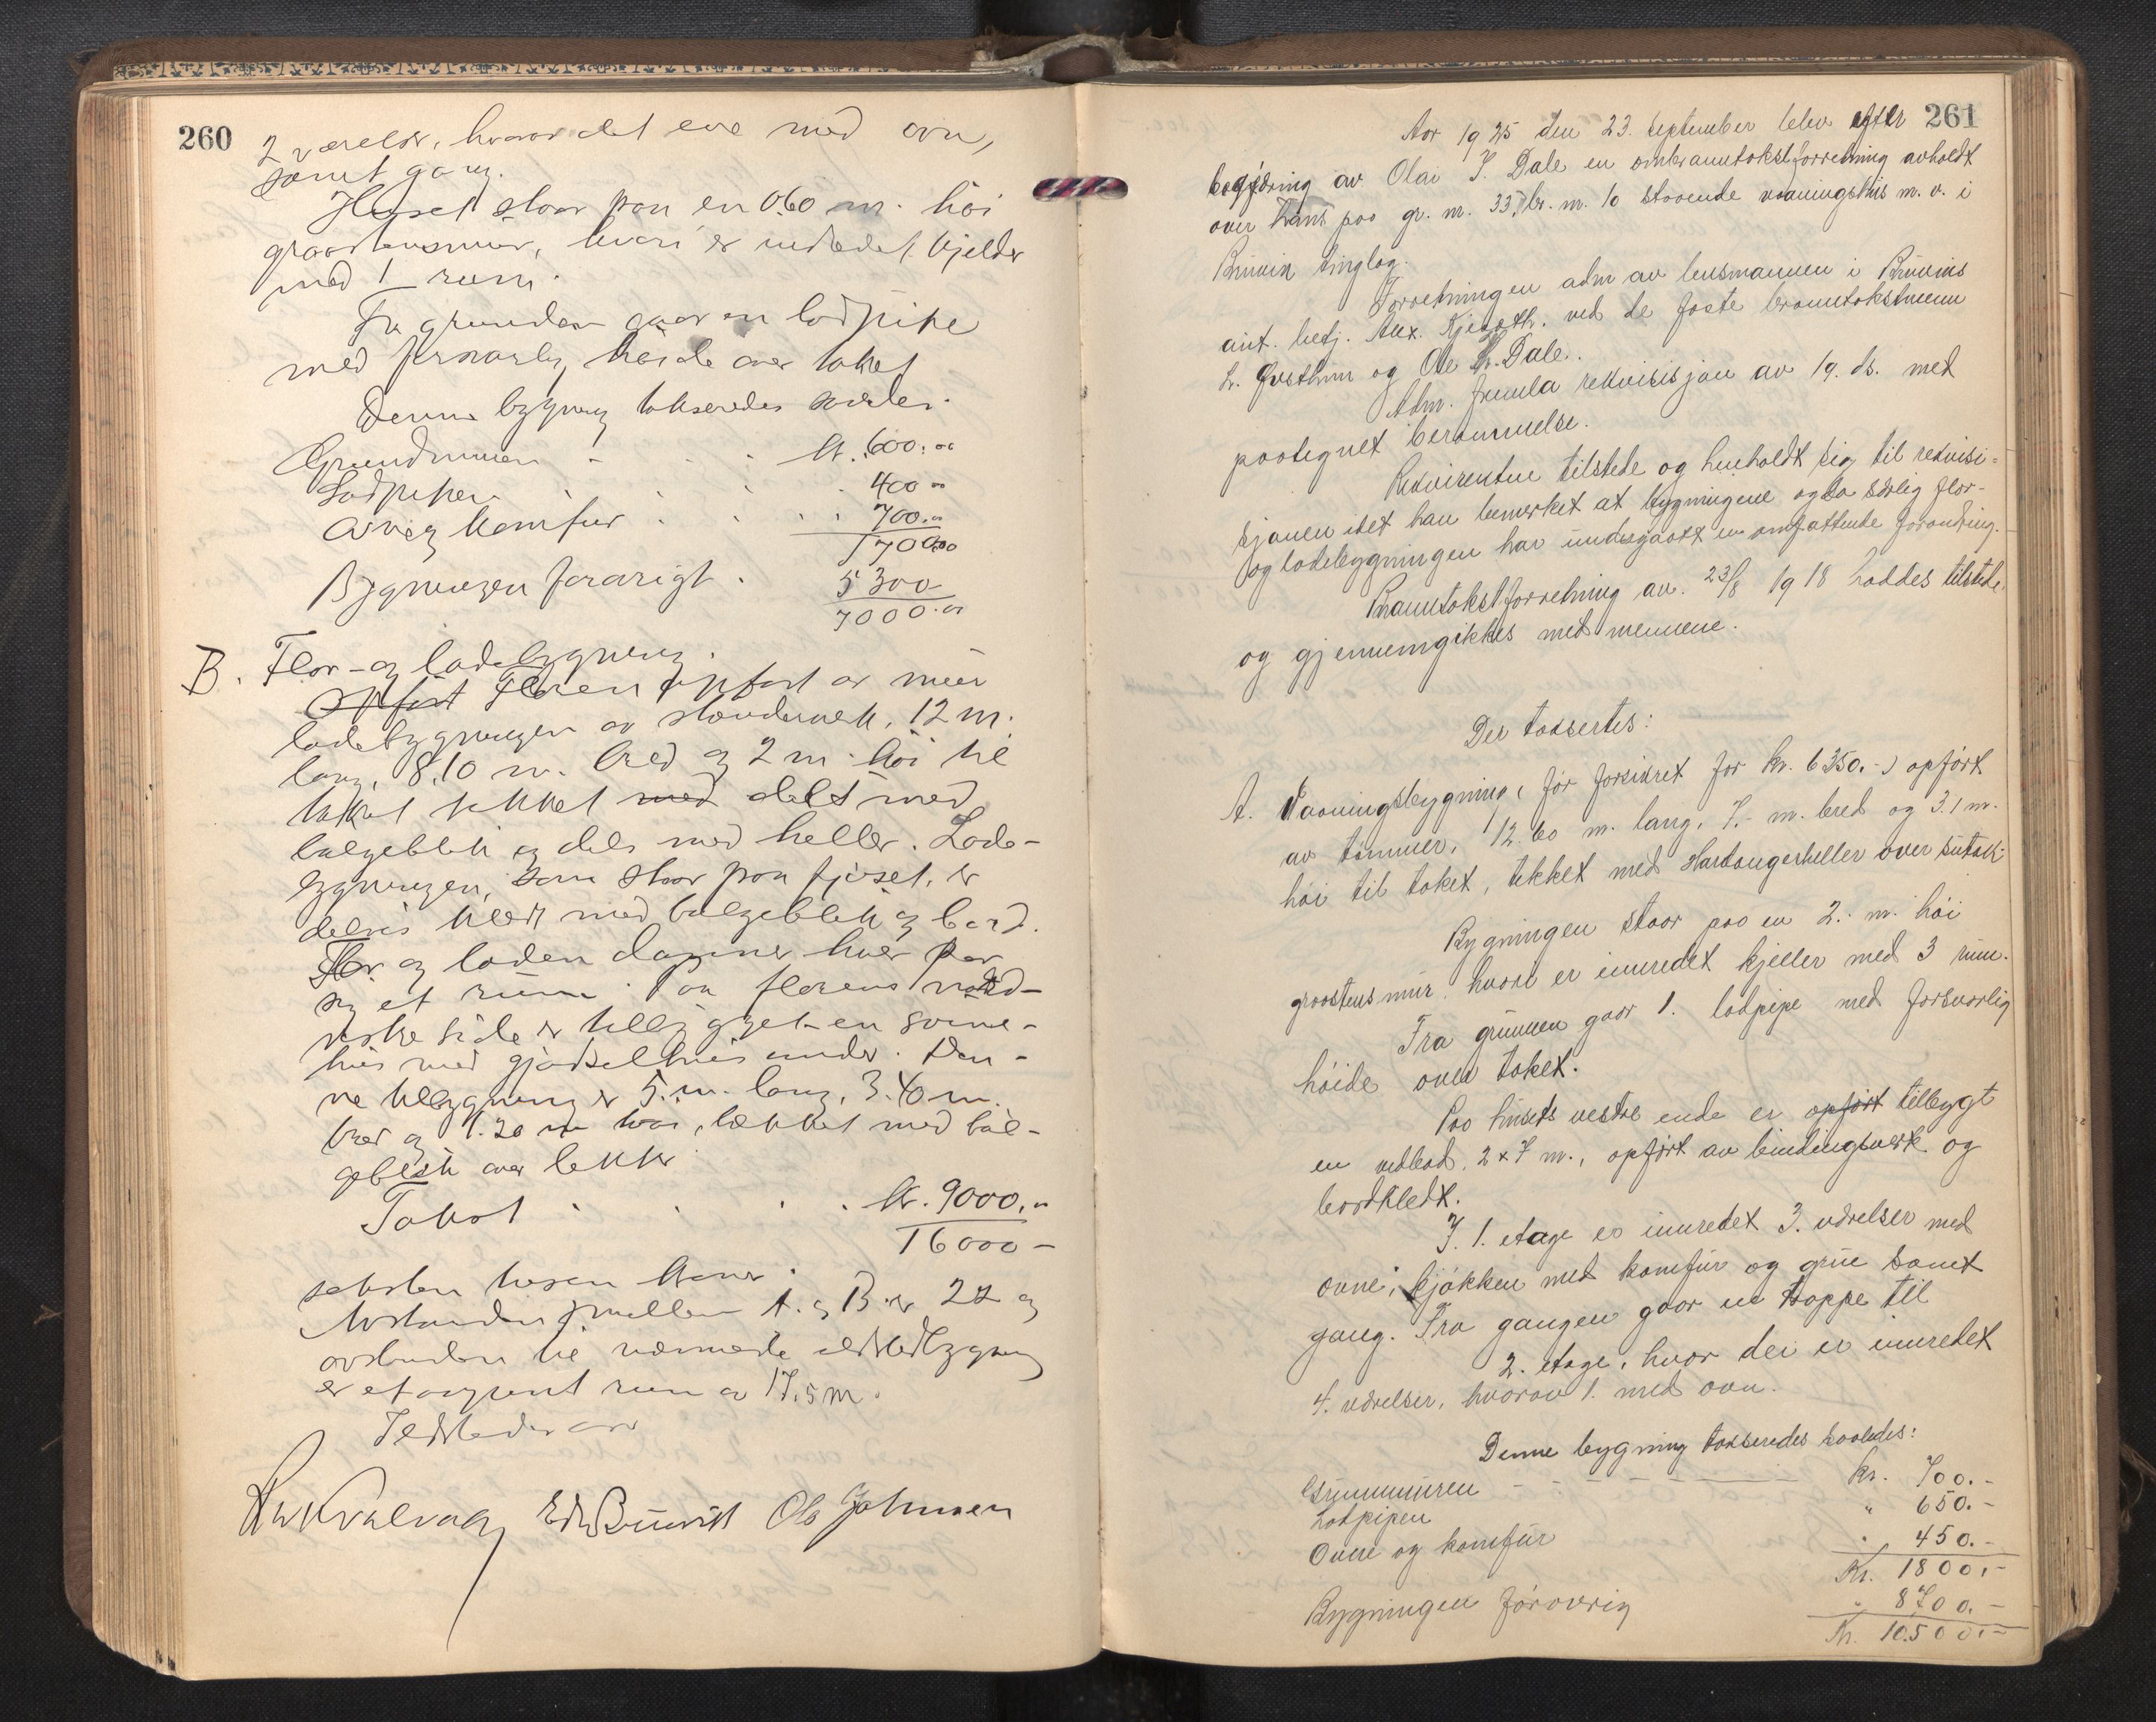 260
2 værelser, hvorav det ene med ovn,
samt gang.
Huset staar paa en 0.60 m. høi
graastensmur, hvori er indredet kjelder
med 1 rum.
Fra grunden gaar en lodpipe
med forsvarlig høide over taket
Denne bygning takseredes saaledes:
Grundmuren kr. 600.00
Lodpipen 400 00
Ovn og komfur 700.00
1700.00
Bygningen forøvrigt 5300
7000.00
B. Flor- og ladebygning.
Opført Floren opført av mur
ladebygningen av stenderverk, 12 m.
lang, 8,10 m. bred og 2 m. høi til
taket tekket med dels med
bølgeblik og dels med heller. Lade-
bygningen, som staar paa fjøset, er
delvis klædt med bølgeblik og bord.
Flor og laden danner hver for
sig et rum. Paa florens nord-
vestre side er tilbygget en svine-
hus med gjødselhus under. Den-
ne tilbygning er 5. m. lang, 3.40 m.
bred og 1.20 m høi, tækket med bøl-
geblik over lekter
Takst kr. 9000.00
16000 –
seksten tusen kroner.
Avstanden mellem A. og B. er 22 og
avstanden til nærmeste ildstedbygning
er et aapent rum av 17,5 m.
Ildsteder
Edv. Bruvik Ole Johnsen
261
Aar 1925 den 23. september blev efter
begjæring av Olai J. Dale en ombranntakstforretning avholdt
over hans paa gr. nr. 33, br. nr. 10 staaende vaaningshus m. v. i
Bruvik tinglag.
Forretningen adm av lensmannen i Bruviks
aut. betj. Alex. ved de faste branntakstmenn
L. Gusthun og Ole Dale.
Adm. fremla rekvisisjon av 19. ds. med
paategnet berammelse.
Rekvirenten tilstede og henholdt sig til rekvisi-
sjonen idet han bemerket at bygningene og da særlig flor-
og ladebygningen har undergaatt en omfattende forandring.
Branntakstforretning av 23/8 1918 haddes tilstede
og gjennemgikkes med mennene.
Der taksertes:
A. Vaaningsbygning, (før forsikret for kr. 6350.-) opført
av tømmer, 12.60 m. lang, 7.- m. bred og 3.1 m.
høi til taket, tekket med Hardangerheller over sutak.
Bygningen staar paa en 2. m. høi
graastensmur hvori er innredet kjeller med 3 rum.
Fra grunnen gaar 1. lodpipe med forsvarlig
høide over taket.
Paa husets vestre ende er opført tilbygt
en vedbod, 2 x 7 m., opført av bindingsverk og
bordkledt.
I. 1. etage er innredet 3. værelser med
ovne, kjøkken med komfur og grue samt
gang. Fra gangen gaar en trappe til
2. etage, hvor der er innredet
4. værelser, hvorav 1. med ovn.
Denne bygning takseredes saaledes:
Grunnmuren kr. 700.-
Lodpipen " 650.-
Ovne og komfur " 450.-
Kr. 1800.-
Bygningen forøvrig " 8700.-
Kr. 10500.-